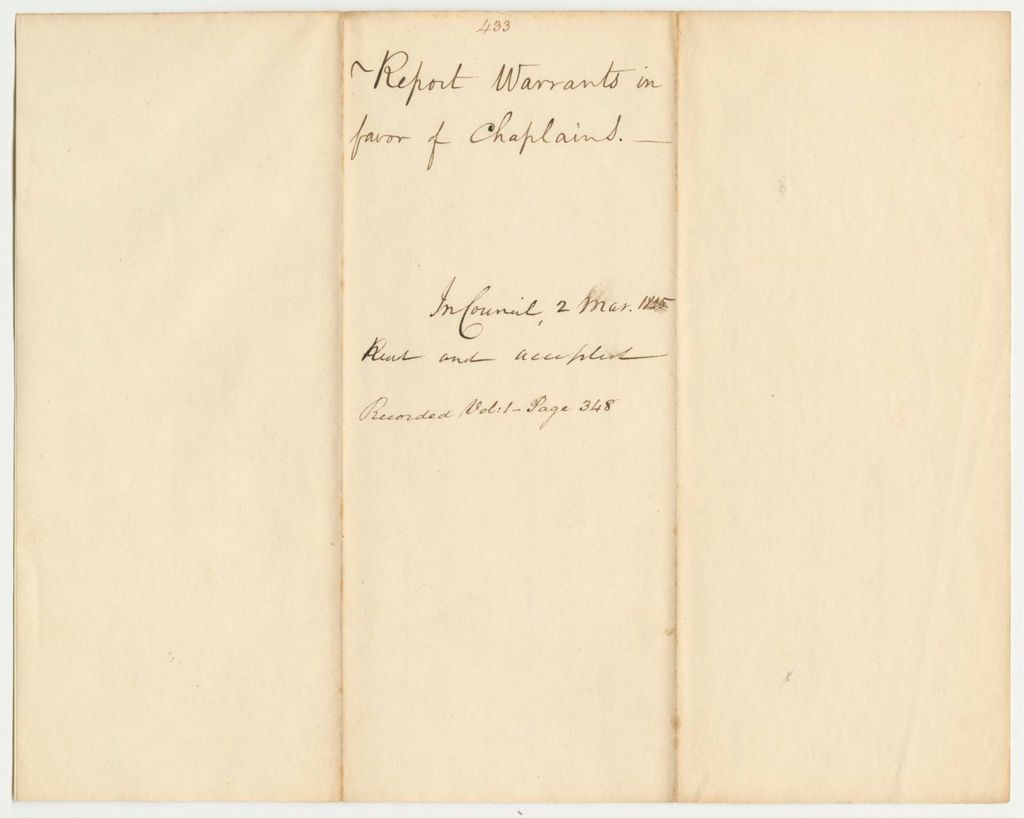 433
~Report Warrants in
favor of Chaplains. —
In Council, 2 Mar. 1825
Read and accepted
Recorded Vol: 1 - Page 348